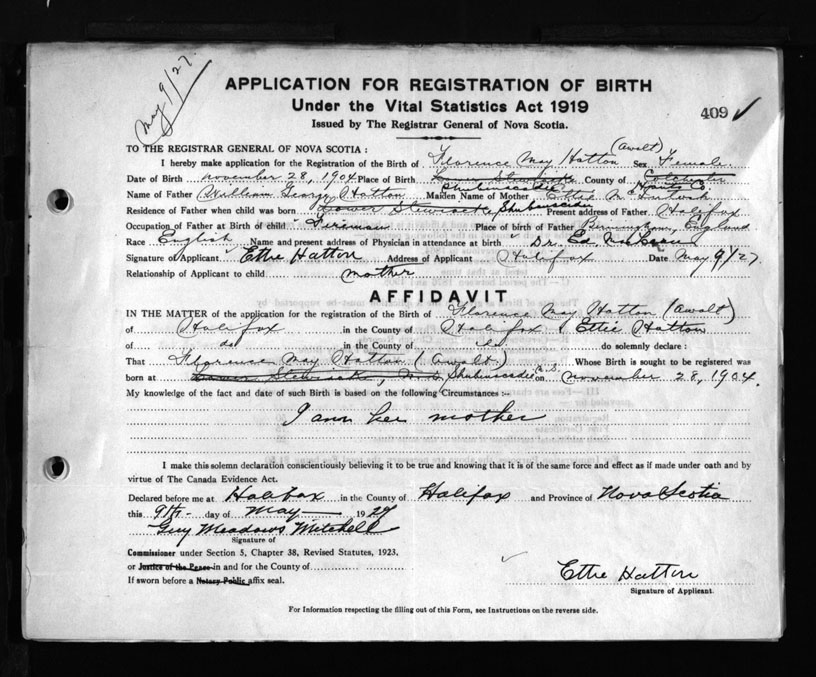 May 9/27.
APPLICATION FOR REGISTRATION OF BIRTH
Under the Vital Statistics Act 1919
409 ✓
Issued by The Registrar General of Nova Scotia.
TO THE REGISTRAR GENERAL OF NOVA SCOTIA:
(Awalt)
I hereby make application for the Registration of the Birth of Florence May Hatton Sex Female
Date of Birth November 28, 1904 Place of Birth Lower Stewiacke County of Colchester
Shubenacadie Hants Co.
Name of Father William George Hatton Maiden Name of Mother Ettie
Residence of Father when child was born Lower Stewiacke Shubenacadie Present address of Father Halifax
Occupation of Father at Birth of child Fireman Place of birth of Father Birmingham, England
Race English Name and present address of Physician in attendance at birth Dr. Ed
Signature of Applicant Ettie Hatton Address of Applicant Halifax Date May 9/27.
Relationship of Applicant to child mother
AFFIDAVIT
IN THE MATTER of the application for the registration of the Birth of Florence May Hatton (Awalt)
of Halifax in the County of Halifax I Ettie Hatton
of do in the County of do do solemnly declare:
That Florence May Hatton (Awalt) Whose Birth is sought to be registered was
born at Lower Stewiacke, N.S. Shubenacadie N.S. on November 28, 1904.
My knowledge of the fact and date of such Birth is based on the following Circumstances:—
I am her mother
I make this solemn declaration conscientiously believing it to be true and knowing that it is of the same force and effect as if made under oath and by
virtue of The Canada Evidence Act.
Declared before me at Halifax in the County of Halifax and Province of Nova Scotia
this 9th day of May 1927
Guy Meadows Mitchell
Signature of
Commissioner under Section 5, Chapter 38, Revised Statutes, 1923.
or Justice of the Peace in and for the County of
If sworn before a Notary Public affix seal.
Ettie Hatton
Signature of Applicant.
For Information respecting the filling out of this Form, see Instructions on the reverse side.